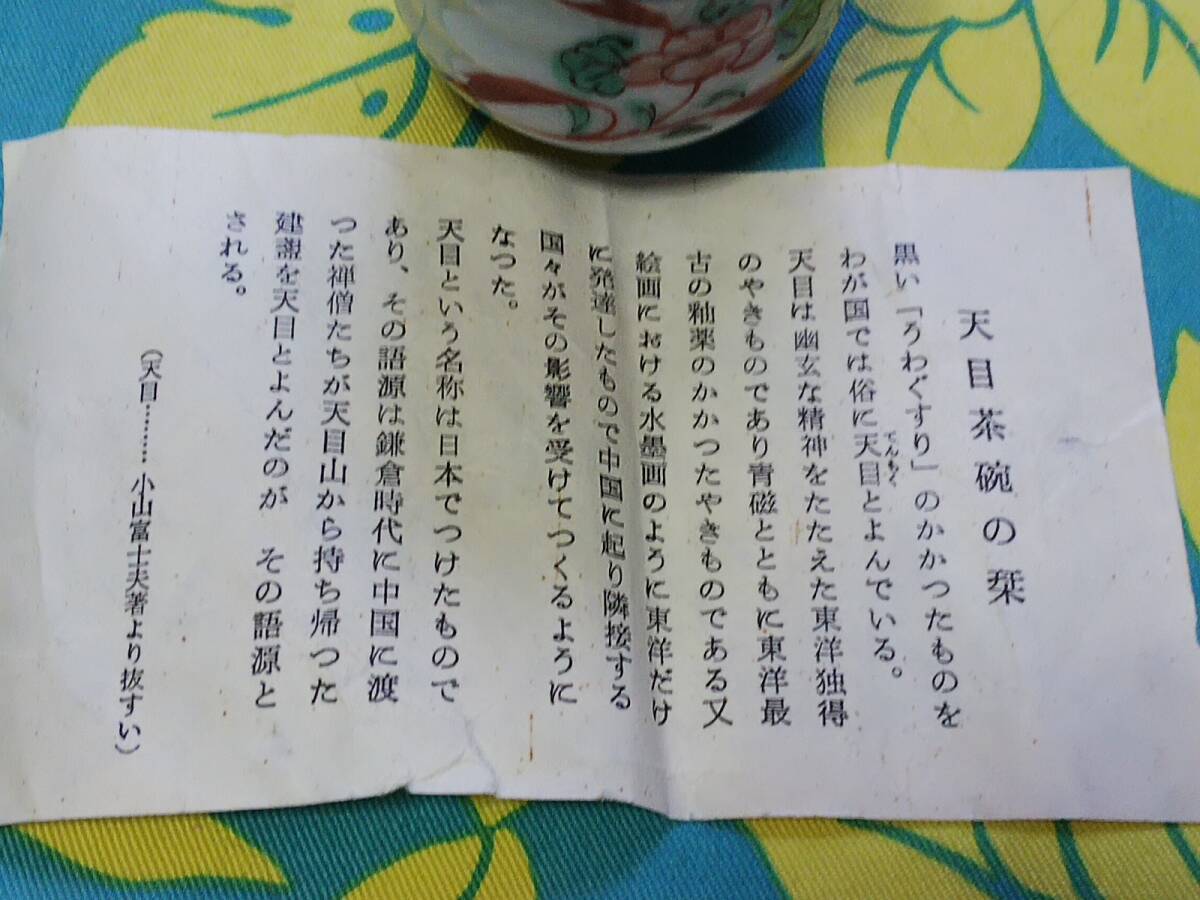 天目茶碗の栞
黒い「うわぐすり」のかかつたものを
わが国では俗に天目とよんでいる。
てんもく
天目は幽玄な精神をたたえた東洋独得
のやきものであり青磁とともに東洋最
古の釉薬のかかつたやきものである又
絵画における水墨画のように東洋だけ
に発達したもので中国に起り隣接する
国々がその影響を受けてつくるように
なつた。
天目という名称は日本でつけたもので
あり、その語源は鎌倉時代に中国に渡
つた禅僧たちが天目山から持ち帰つた
建盞を天目とよんだのが その語源と
される。
(天目………小山富士夫著より抜すい)